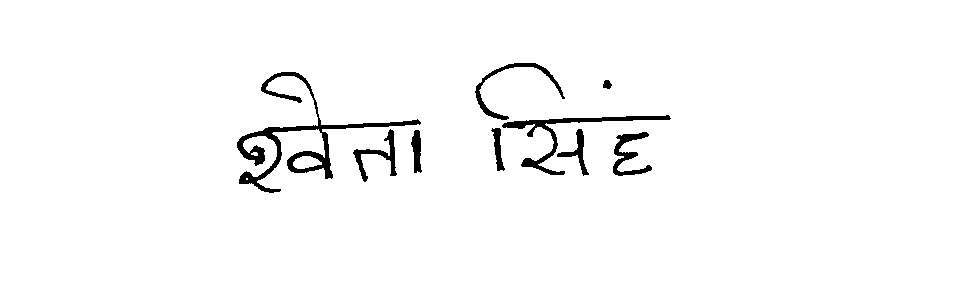 श्वेता सिंह